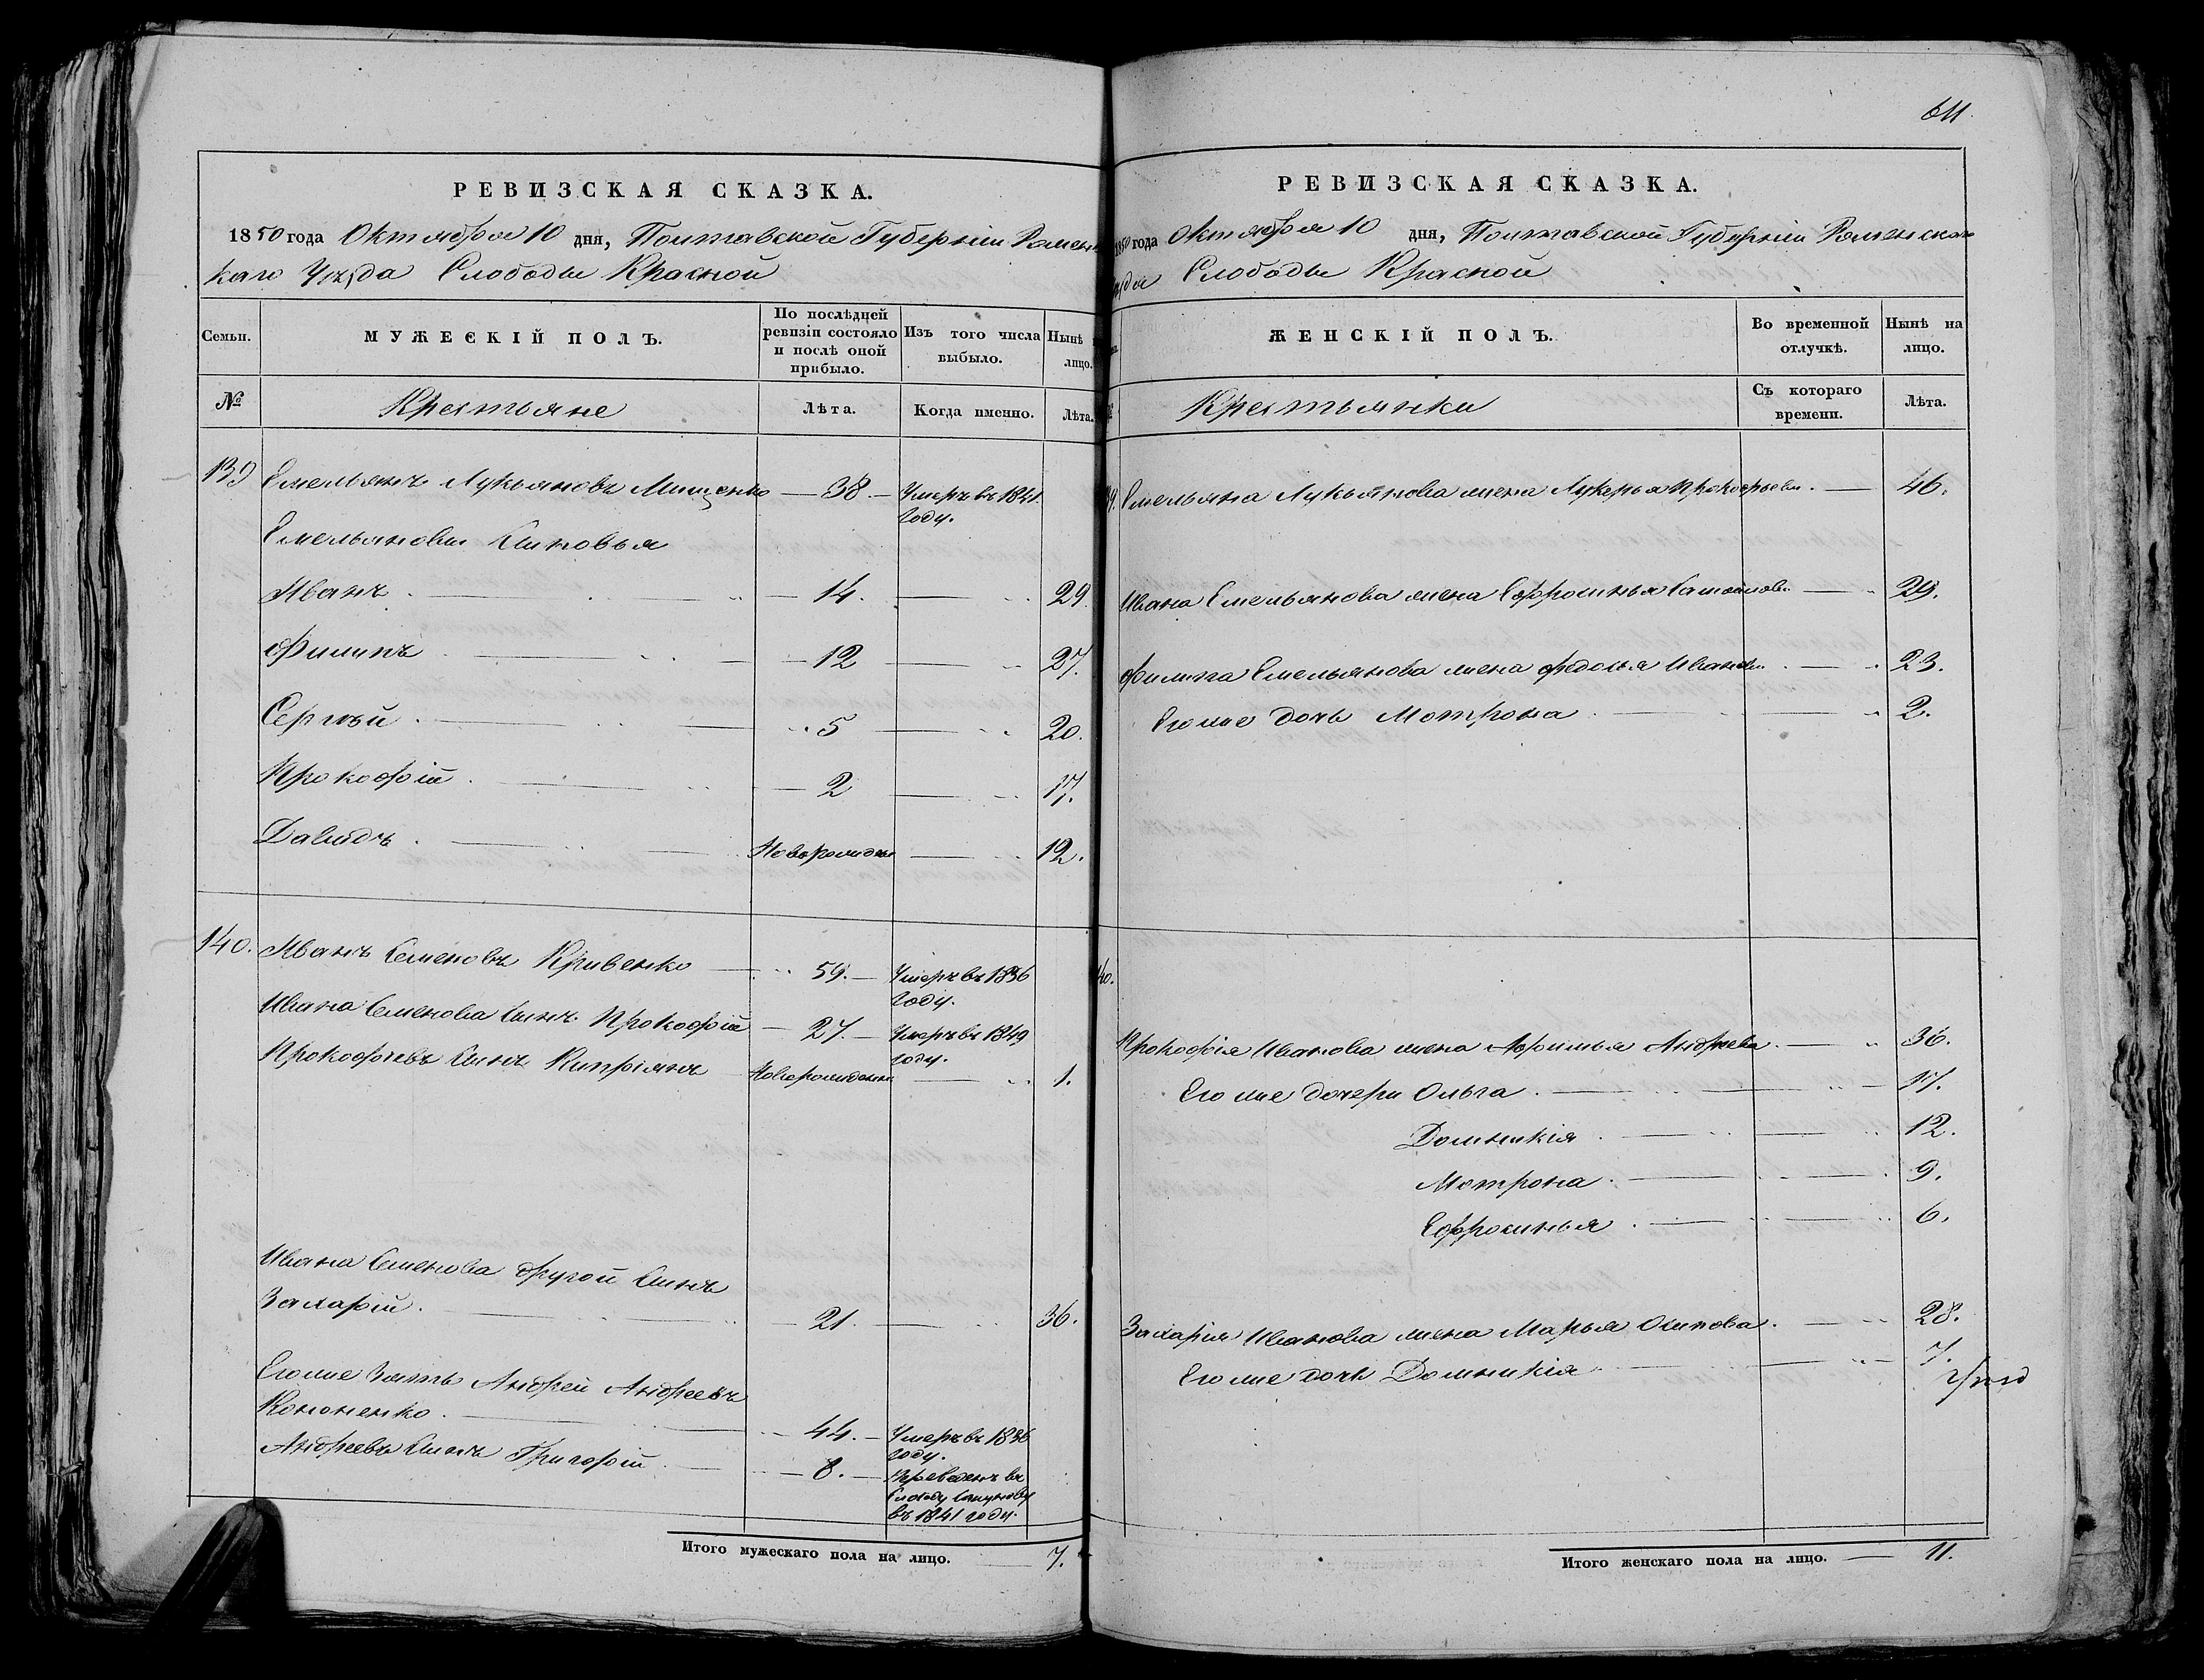 РЕВИЗСКАЯ СКАЗКА.
1850 года Октября 10 дня, Полтавской Губерніи Роменс
каго Уѣзда Слободы Красной
Семьи.
МУЖЕСКІЙ ПОЛЪ.
По послѣдней ревизіи состояло и послѣ оной прибыло.
Изъ того числа выбыло.
Нынѣ лицо.
№
Крестьяне
Лѣта.
Когда именно.
Лѣта.
139 Емельянъ Лукьяновъ Мищенко — 38. — Умеръ въ 1841.
году.
Емельяновы Сыновья
Иванъ 14. 29.
Филипъ 12 27.
Сергѣй 5 20.
Прокофій 2 17.
Давидъ Новорожден 12.
140. Иванъ Семеновъ Кривенко 59. — Умеръ въ 1836
году.
Ивана Семенова Сынъ Прокофій — 27. — Умеръ въ 1849
году.
Прокофьевъ Сынъ Кипріянъ Новорожденн 1.
Ивана Семенова другой Сынъ
Захарій 21. 36.
Его же Зять Андрей Андреевъ
Кононенко 44. — Умеръ въ 1836
году.
Андреевъ Сынъ Григорій 8. — Переведенъ въ
въ 1841 году.
Итого мужескаго пола на лицо. — 7.
611
РЕВИЗСКАЯ СКАЗКА.
1850 года Октября 10 дня, Полтавской Губерніи Роменскаго
ѣзда Слободы Красной
ЖЕНСКІЙ ПОЛЪ.
Во временной отлучкѣ.
Нынѣ на лицо.
Крестьянки
Съ котораго времени.
Лѣта.
39. Емельяна Лукьянова жена Лукерья Прокофьева — 46.
Ивана Емельянова жена Ефросинья 29.
Филипа Емельянова жена Федосья Иванова 23.
Его же дочь Мотрона 2.
140.
Прокофія Иванова жена Афимья Андреева 36.
Его же дочери Ольга 17.
Домникія 12.
Мотрона 9.
Ефросинья 6.
Захарія Иванова жена Марья Осипова 28.
Его же дочь Домникія 7.
Итого женскаго пола на лицо. — 11.